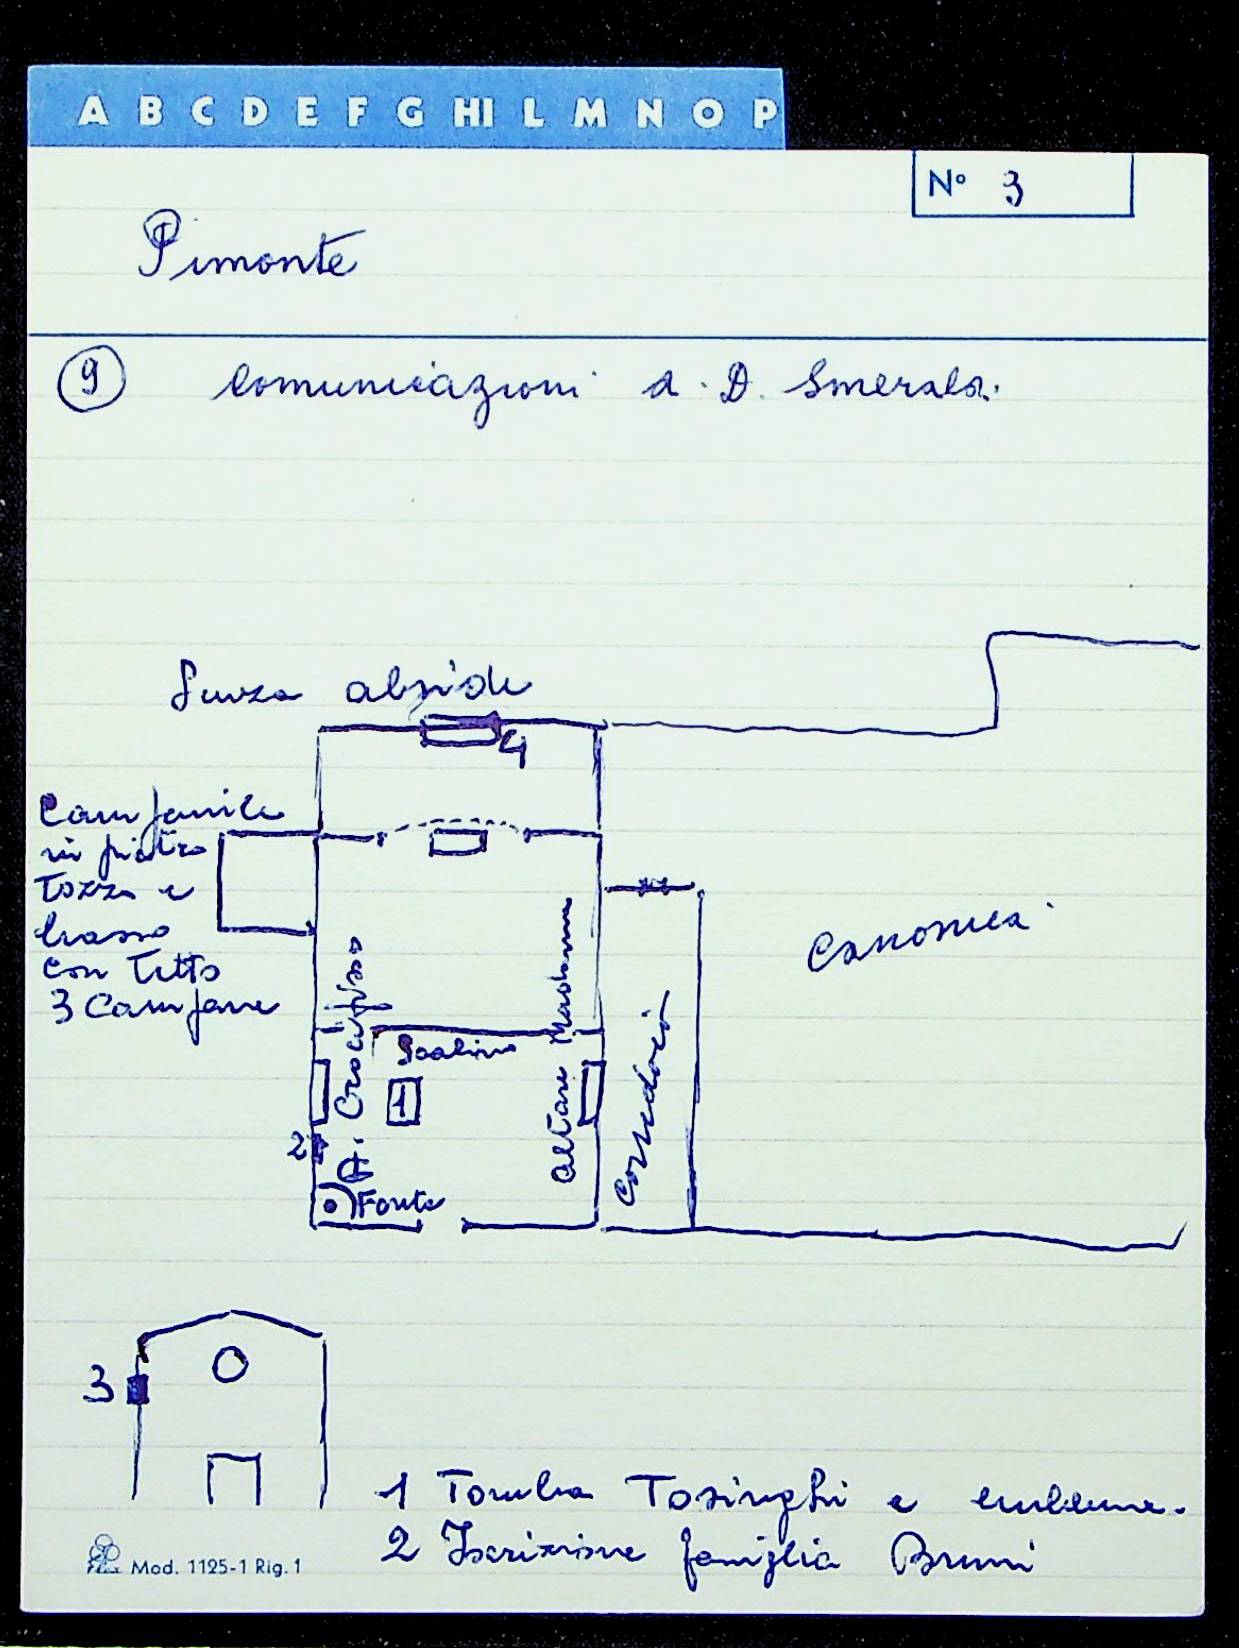 A B C D E F G HI L M N O P
Nº 3
Pimonte
9 Comunicazioni a D. Smeraldo.
Senza abside
4
Campanile
in pietra
Tozzo e
basso
con Tetto
3 Campane
Canonica
Crocifisso
Altare Madonna
Corridoio
Scalino
1
2
Fonte
3
1 Tomba Tosinghi e emblema.
2 Iscrizione famiglia Bruni
Mod. 1125-1 Rig. 1